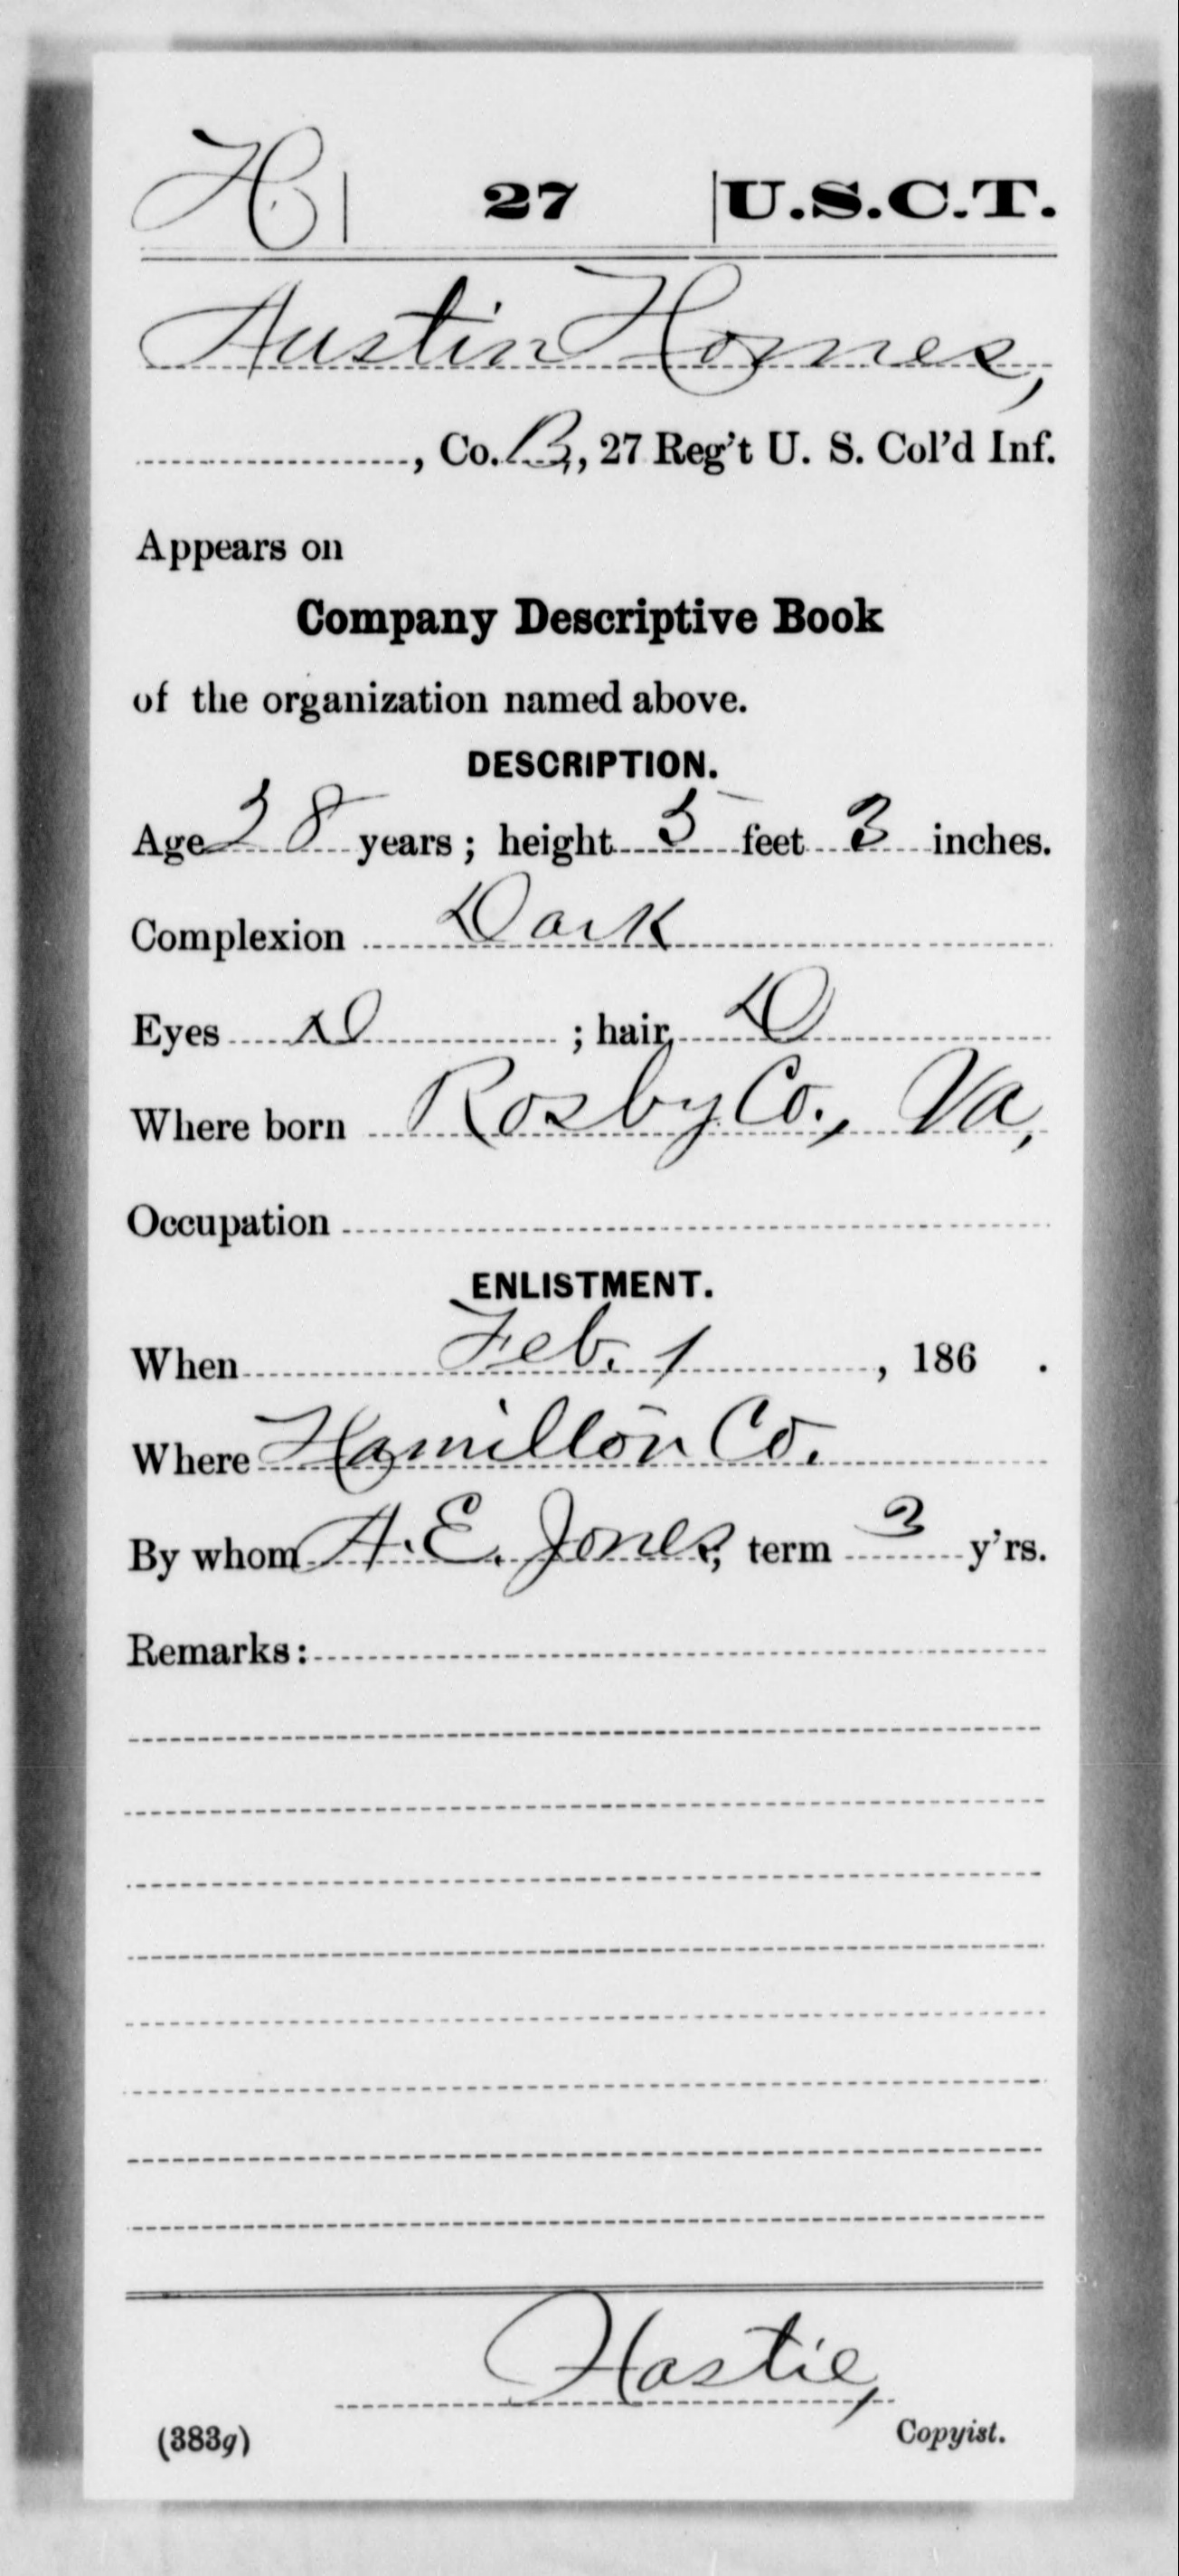 H | 27 | U.S.C.T.
Austin Homes,
, Co. B, 27 Reg't U. S. Col'd Inf.
Appears on
Company Descriptive Book
of the organization named above.
DESCRIPTION.
Age 28 years; height 5 feet 3 inches.
Complexion Dark
Eyes D ; hair D
Where born Rosby Co., Va,
Occupation
ENLISTMENT.
When Feb. 1, 186 .
Where Hamilton Co.
By whom A. E. Jones; term 3 y'rs.
Remarks:
Hastie,
(383g) Copyist.